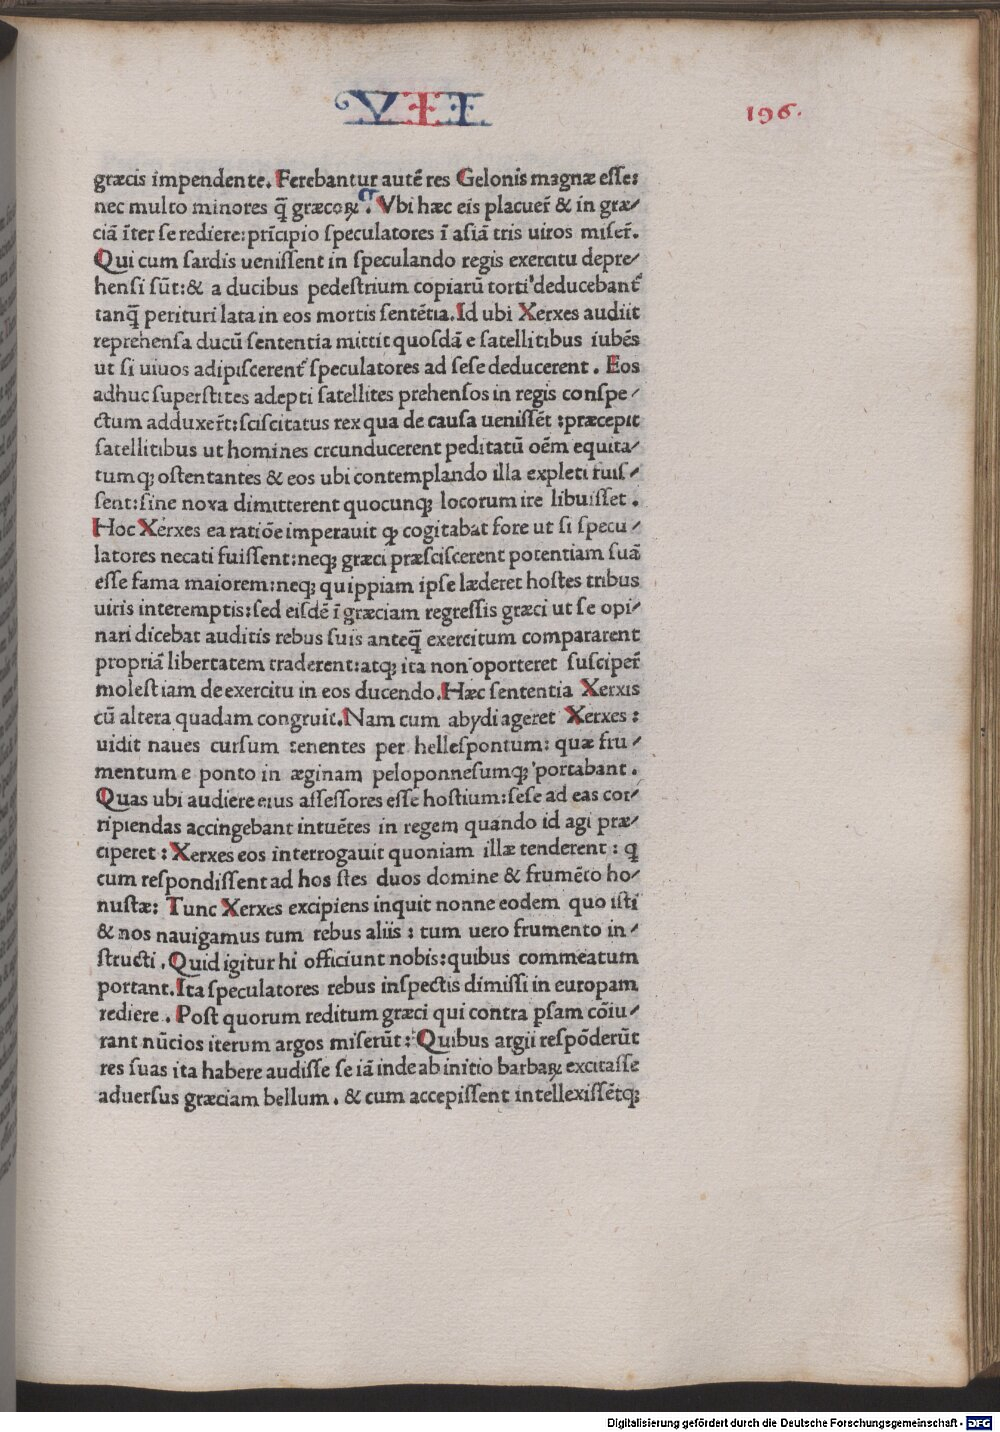 VII
196.
græcis impendente. Ferebantur autē res Gelonis magnæ eſſe:
nec multo minores q̄ græcoꝝ. Vbi hæc eis placuer̄ & in græ⸗
ciā īter ſe rediere: prīcipio ſpeculatores ī aſiā tris uiros miſer̄.
Qui cum ſardis ueniſſent in ſpeculando regis exercitu depre⸗
henſi ſūt: & a ducibus pedeſtrium copiarū torti deducebant᷑
tanq̄ perituri lata in eos mortis ſentētia. Id ubi Xerxes audiit
reprehenſa ducū ſententia mittit quoſdā e ſatellitibus iubēs
ut ſi uiuos adipiſcerent᷑ ſpeculatores ad ſeſe deducerent. Eos
adhuc ſuperſtites adepti ſatellites prehenſos in regis conſpe⸗
ctum adduxer̄t: ſciſcitatus rex qua de cauſa ueniſſēt: præcepit
ſatellitibus ut homines crcunducerent peditatū oēm equita⸗
tumq; oſtentantes & eos ubi contemplando illa expleti fuiſ⸗
ſent: ſine noxa dimitterent quocunq; locorum ire libuiſſet.
Hoc Xerxes ea ratiōe imperauit ꝙ cogitabat fore ut ſi ſpecu⸗
latores necati fuiſſent: neq; græci præſciſcerent potentiam ſuā
eſſe fama maiorem: neq; quippiam ipſe læderet hoſtes tribus
uiris interemptis: ſed eiſdē ī græciam regreſſis græci ut ſe opi⸗
nari dicebat auditis rebus ſuis anteq̄ exercitum compararent
propriā libertatem traderent: atq; ita non oporteret ſuſciper̄
moleſtiam de exercitu in eos ducendo. Hæc ſententia Xerxis
cū altera quadam congruit. Nam cum abydi ageret Xerxes:
uidit naues curſum tenentes per helleſpontum: quæ fru⸗
mentum e ponto in æginam peloponneſumq; portabant.
Quas ubi audiere eius aſſeſſores eſſe hoſtium: ſeſe ad eas cor⸗
ripiendas accingebant intuētes in regem quando id agi præ⸗
ciperet: Xerxes eos interrogauit quoniam illæ tenderent: q̄
cum reſpondiſſent ad hoſtes duos domine & frumēto ho⸗
nuſtæ: Tunc Xerxes excipiens inquit nonne eodem quo iſti
& nos nauigamus tum rebus aliis: tum uero frumento in⸗
ſtructi. Quid igitur hi officiunt nobis: quibus commeatum
portant. Ita ſpeculatores rebus inſpectis dimiſſi in europam
rediere. Poſt quorum reditum græci qui contra pſam cōiu⸗
rant nūcios iterum argos miſerūt: Quibus argii reſpōderūt
res ſuas ita habere audiſſe ſe iā inde ab initio barbaꝝ excitaſſe
aduerſus græciam bellum. & cum accepiſſent intellexiſſētq;
Digitalisierung gefördert durch die Deutsche Forschungsgemeinschaft - DFG